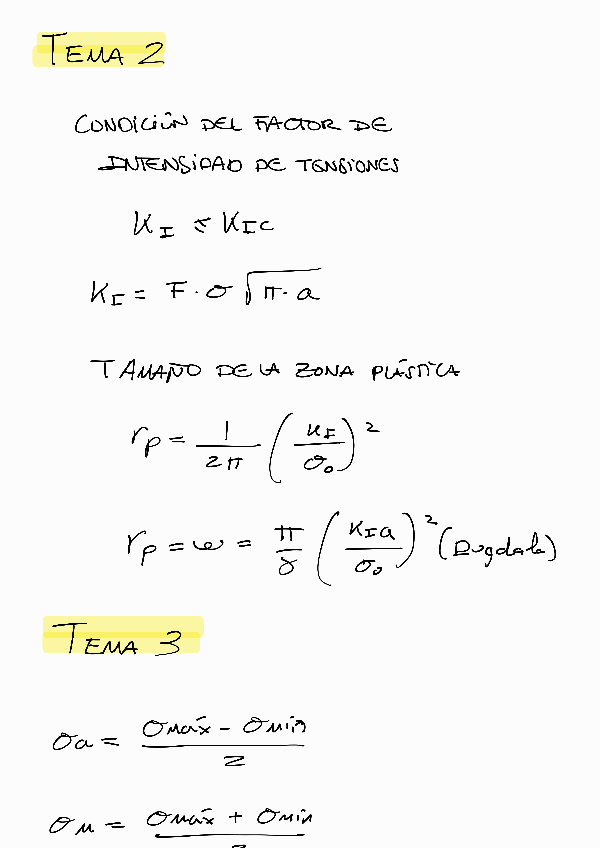 TEMA 2
CONDICIÓN DEL FACTOR DE
INTENSIDAD DE TENSIONES
K_I ≤ K_Ic
K_I = F · σ √(π · a)
TAMAÑO DE LA ZONA PLÁSTICA
r_p = 1/(2π) (K_I/σ_0)^2
r_p = ω = π/8 (K_Ia/σ_0)^2 (Dugdale)
TEMA 3
σ_a = (σ_máx - σ_mín)/2
σ_m = (σ_máx + σ_mín)/2